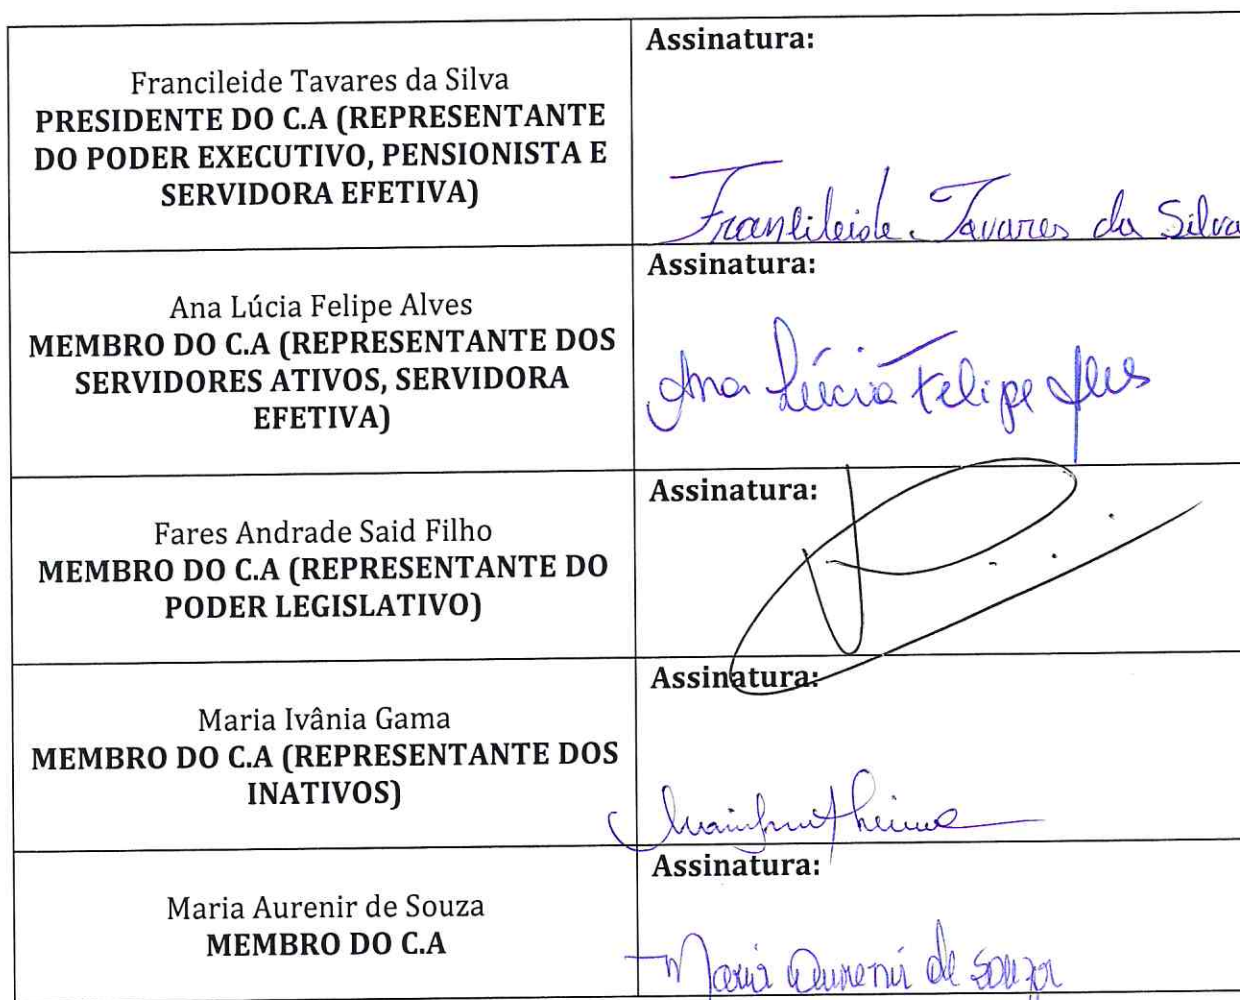 Francileide Tavares da Silva
PRESIDENTE DO C.A (REPRESENTANTE
DO PODER EXECUTIVO, PENSIONISTA E
SERVIDORA EFETIVA)
Assinatura:
Francileide Tavares da Silva
Ana Lúcia Felipe Alves
MEMBRO DO C.A (REPRESENTANTE DOS
SERVIDORES ATIVOS, SERVIDORA
EFETIVA)
Assinatura:
Ana Lúcia Felipe Alves
Fares Andrade Said Filho
MEMBRO DO C.A (REPRESENTANTE DO
PODER LEGISLATIVO)
Assinatura:
Maria Ivânia Gama
MEMBRO DO C.A (REPRESENTANTE DOS
INATIVOS)
Assinatura:
Maria Aurenir de Souza
MEMBRO DO C.A
Assinatura:
Maria Aurenir de Souza